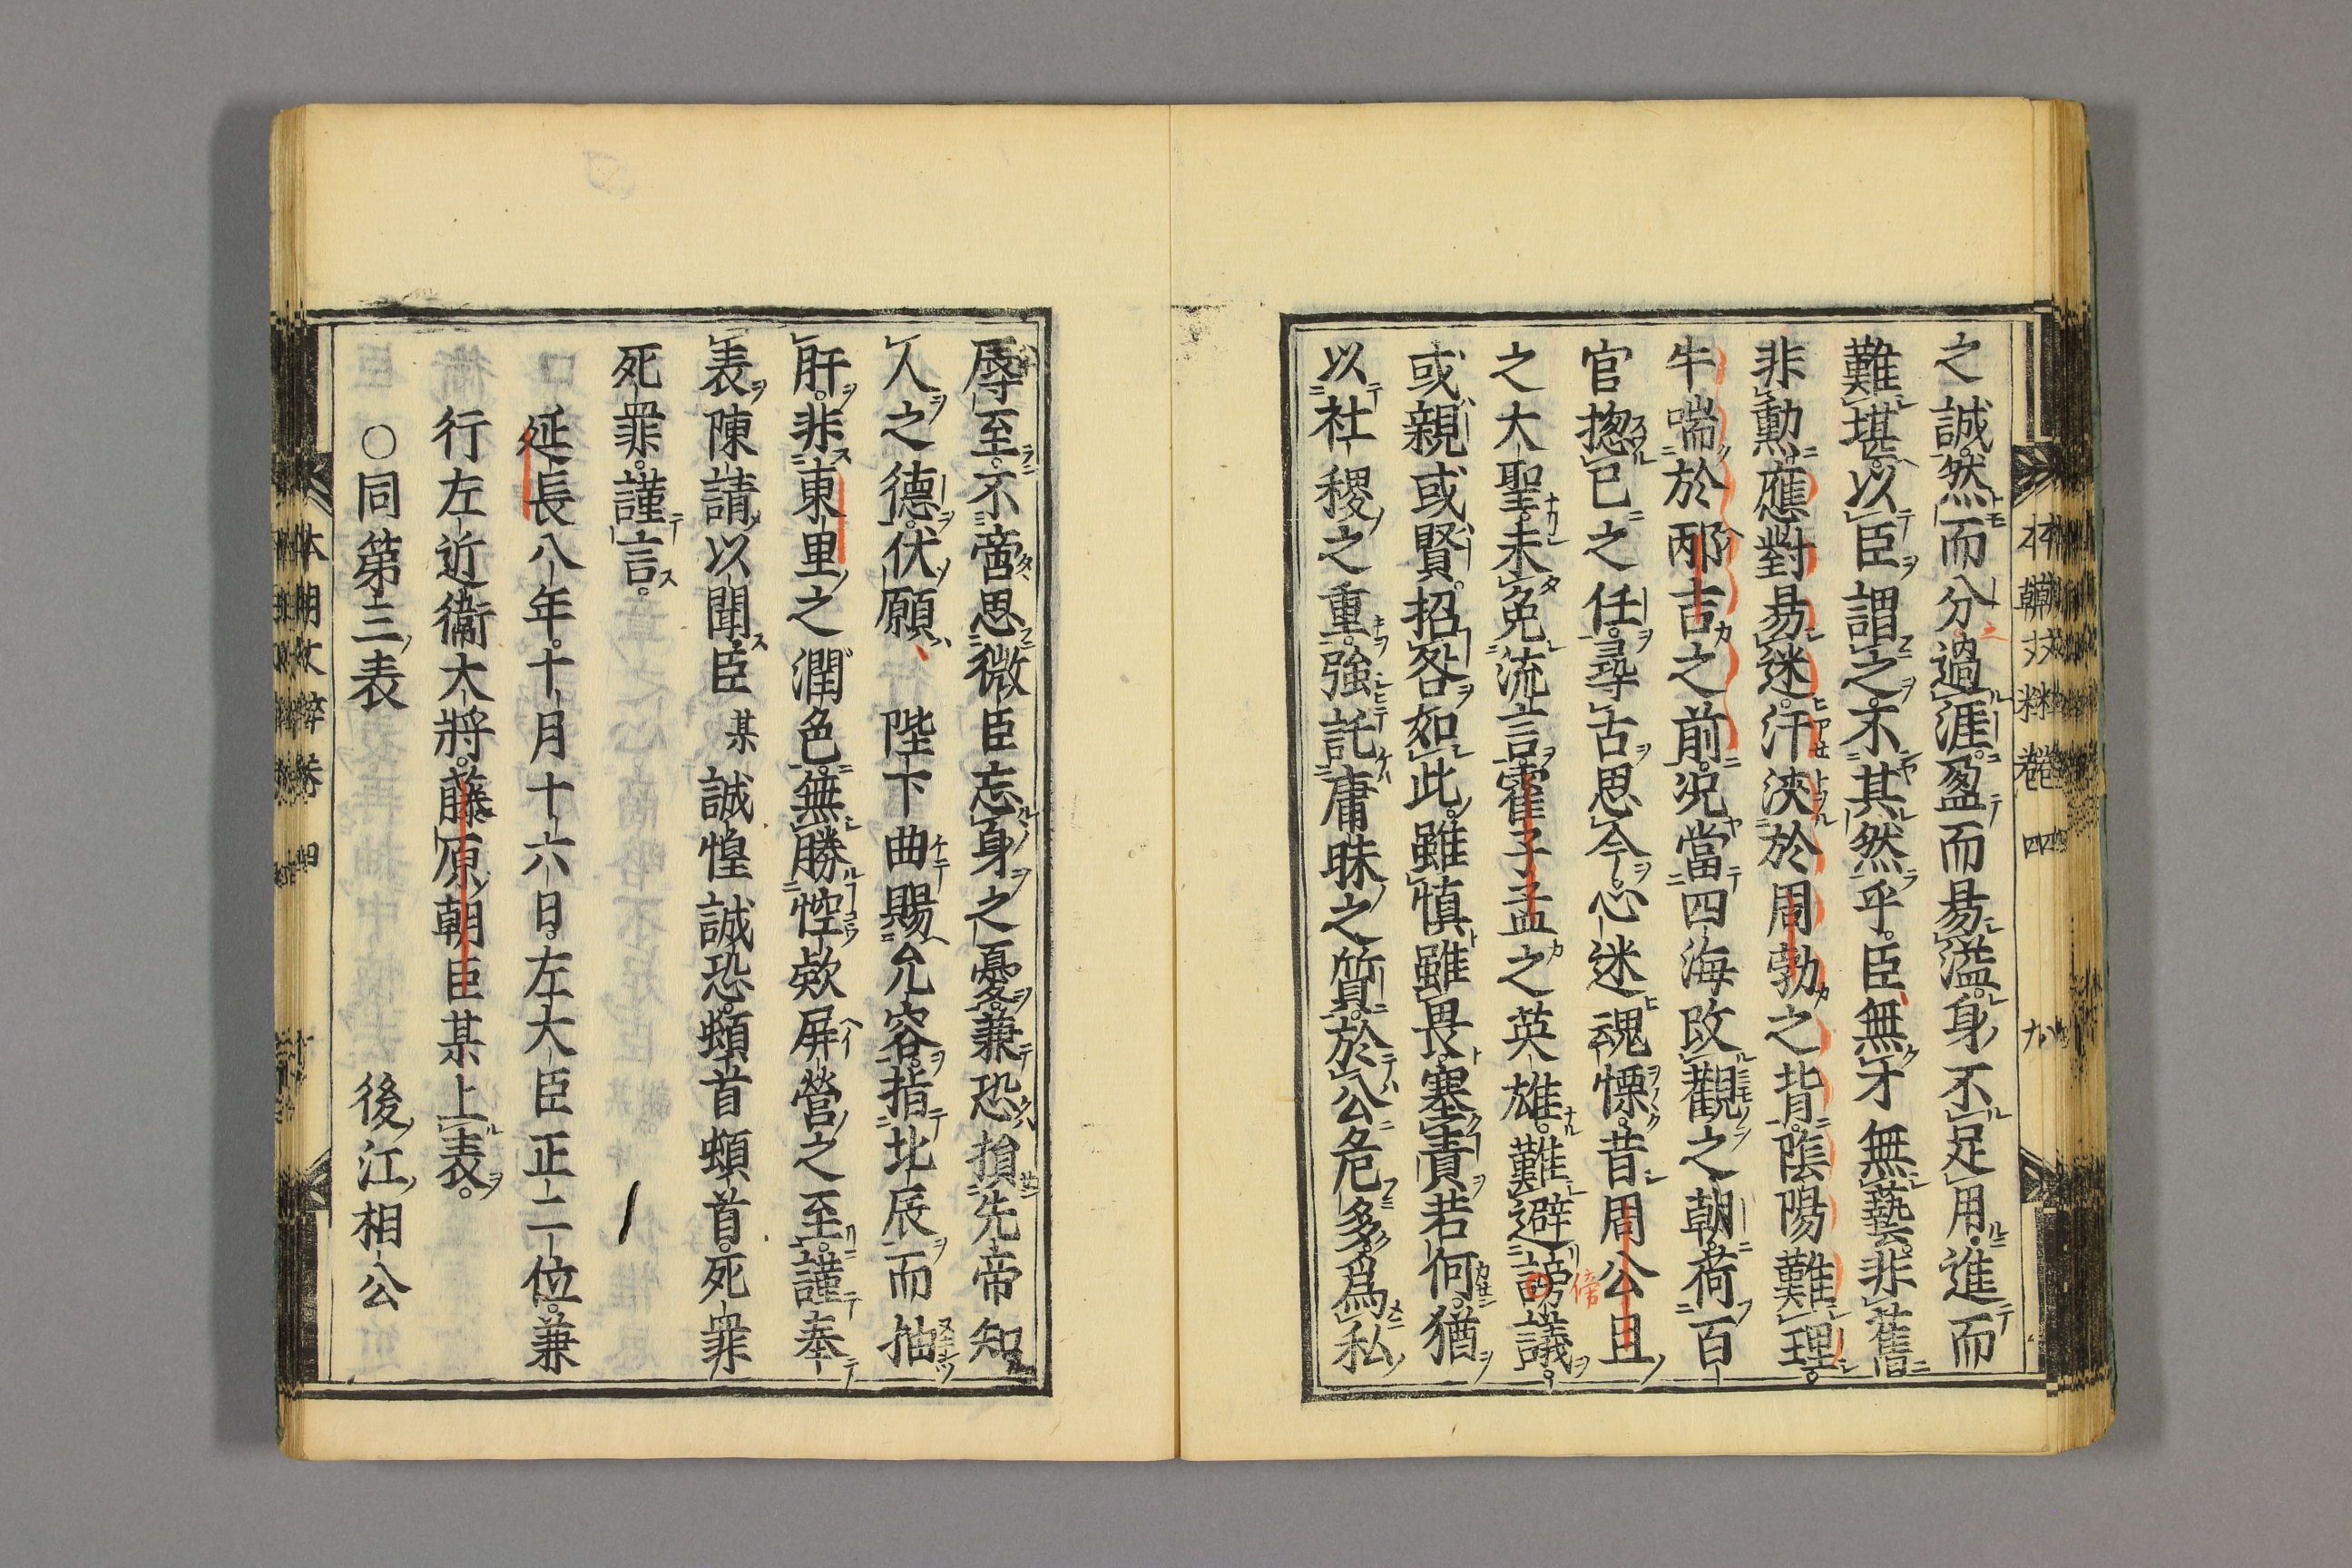 之誠。然而分過涯。盈而易溢。身不足用。進而
難堪。以臣謂之。不其然乎。臣無才無藝。非舊
非勳。應對易迷。汗浹於周勃之背。陰陽難理。
牛喘於邴吉之前。況當四海改觀之朝。荷百
官揔已之任。尋古思今。心迷魂慄。昔周公旦
之大聖。未免流言。霍子孟之英雄。難避謗議。
或親或賢。招咎如此。雖慎雖畏。塞責若何。猶
以社稷之重。強託庸昧之質。於公危多。為私
辱至。不啻思微臣忘身之憂。兼恐損先帝知
人之德。伏願 陛下曲賜允容。指北辰而抽
肝。非東里之潤色。無勝悾款屏營之至。謹奉
表陳請以聞。臣某誠惶誠恐。頓首頓首。死罪
死罪。謹言。
延長八年。十月十六日。左大臣正二位。兼
行左近衛大將。藤原朝臣某上表。
○同第三表 後江相公
本朝文粹卷四 九
傍
本朝文粹卷 四